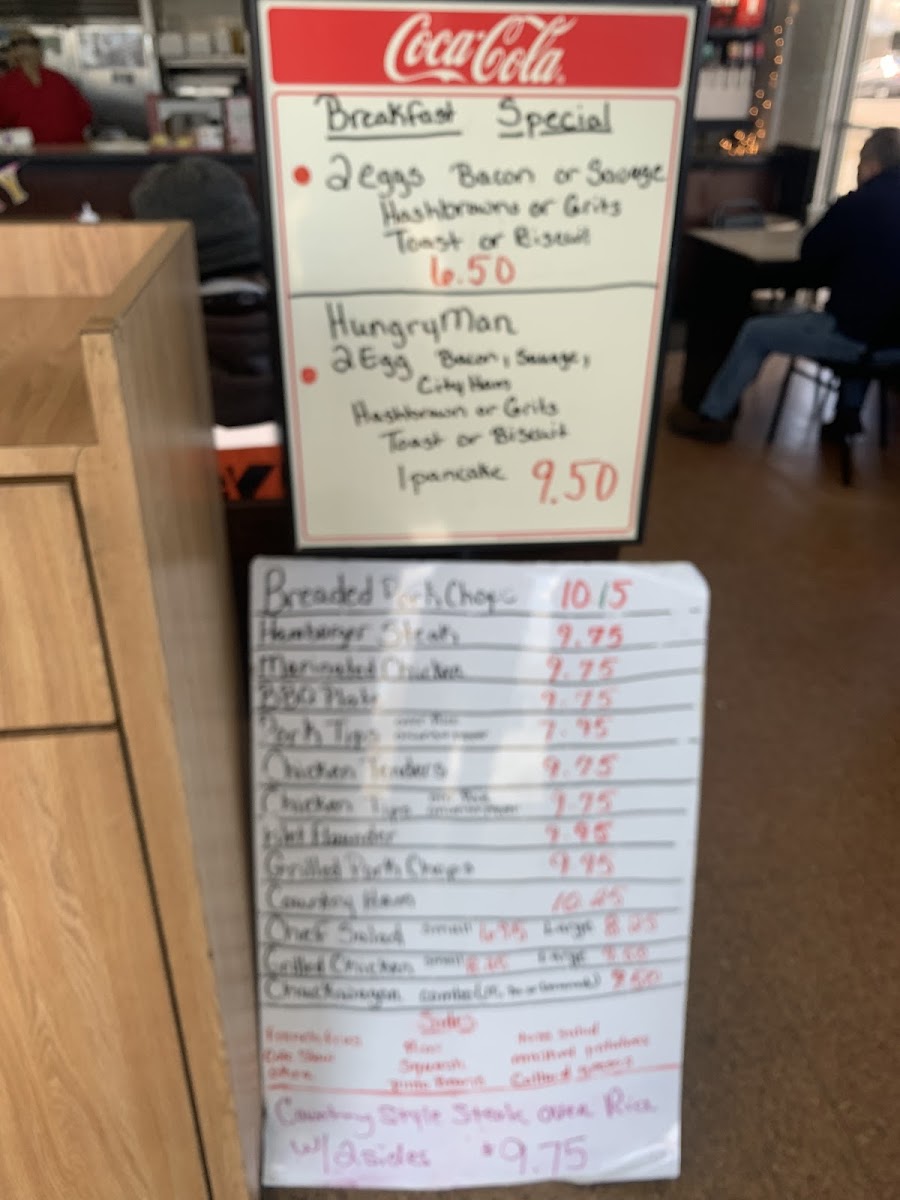 Coca-Cola
Breakfast Special
2 eggs Bacon or Sausage
Hashbrowns or Grits
Toast or Biscuit
6.50
HungryMan
2 Egg Bacon, Sausage,
City Ham
Hashbrown or Grits
Toast or Biscuit
1 pancake 9.50
Breaded Pork Chops 10.15
Hamburger Steak 9.75
Marinated Chicken 9.75
BBQ Plate 9.75
Pork Tips
Chicken Tenders 9.75
Chicken Tips 9.75
Flounder
Grilled Pork Chops
Country Ham
Chef Salad Small Large 8.25
Grilled Chicken Small Large
Chuckwagon combo
Sides
Slaw
Squash
Pinto Beans
potatoes
Collard greens
Country Style Steak over Rice
w/ 2 sides $9.75